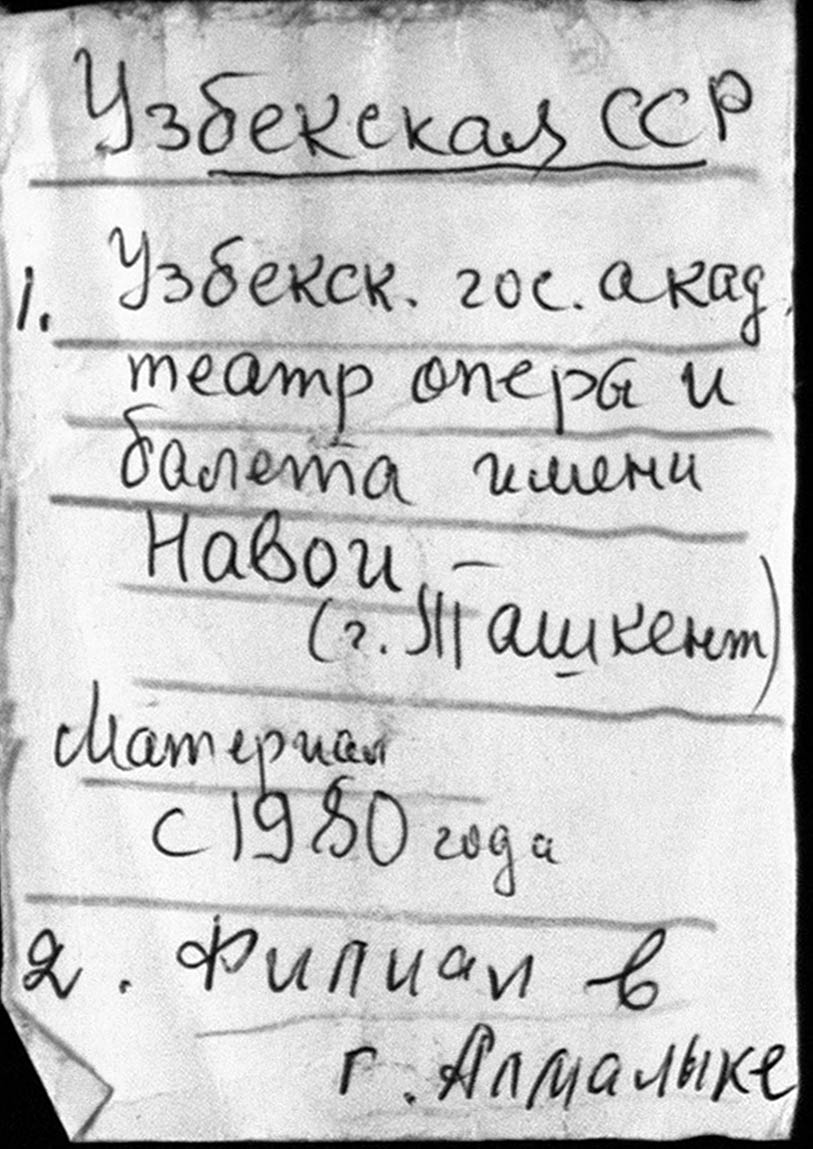 Узбекская ССР
1. Узбекск. гос. акад.
театр оперы и
балета имени
Навои –
(г. Ташкент)
Материал
с 1980 года
2. Филиал в
г. Алмалыке